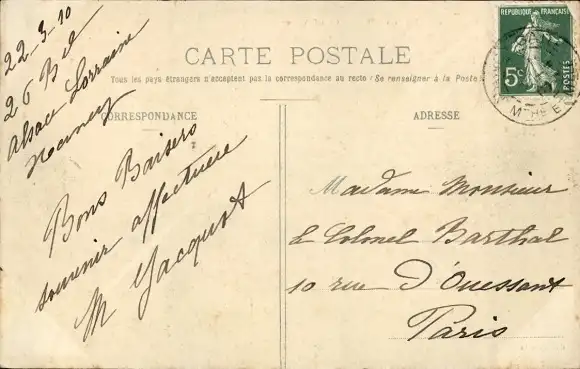 CARTE POSTALE
Tous les pays étrangers n'acceptent pas la correspondance au recto (Se renseigner à la Poste)
CORRESPONDANCE
ADRESSE
22-3-10
26 Bd
Alsace Lorraine
Nancy
Bons Baisers
souvenir affectueux
M Jacquot
Madame Monsieur
le Colonel Barthal
10 rue D'Ouessant
Paris
REPUBLIQUE FRANÇAISE
5c
POSTES